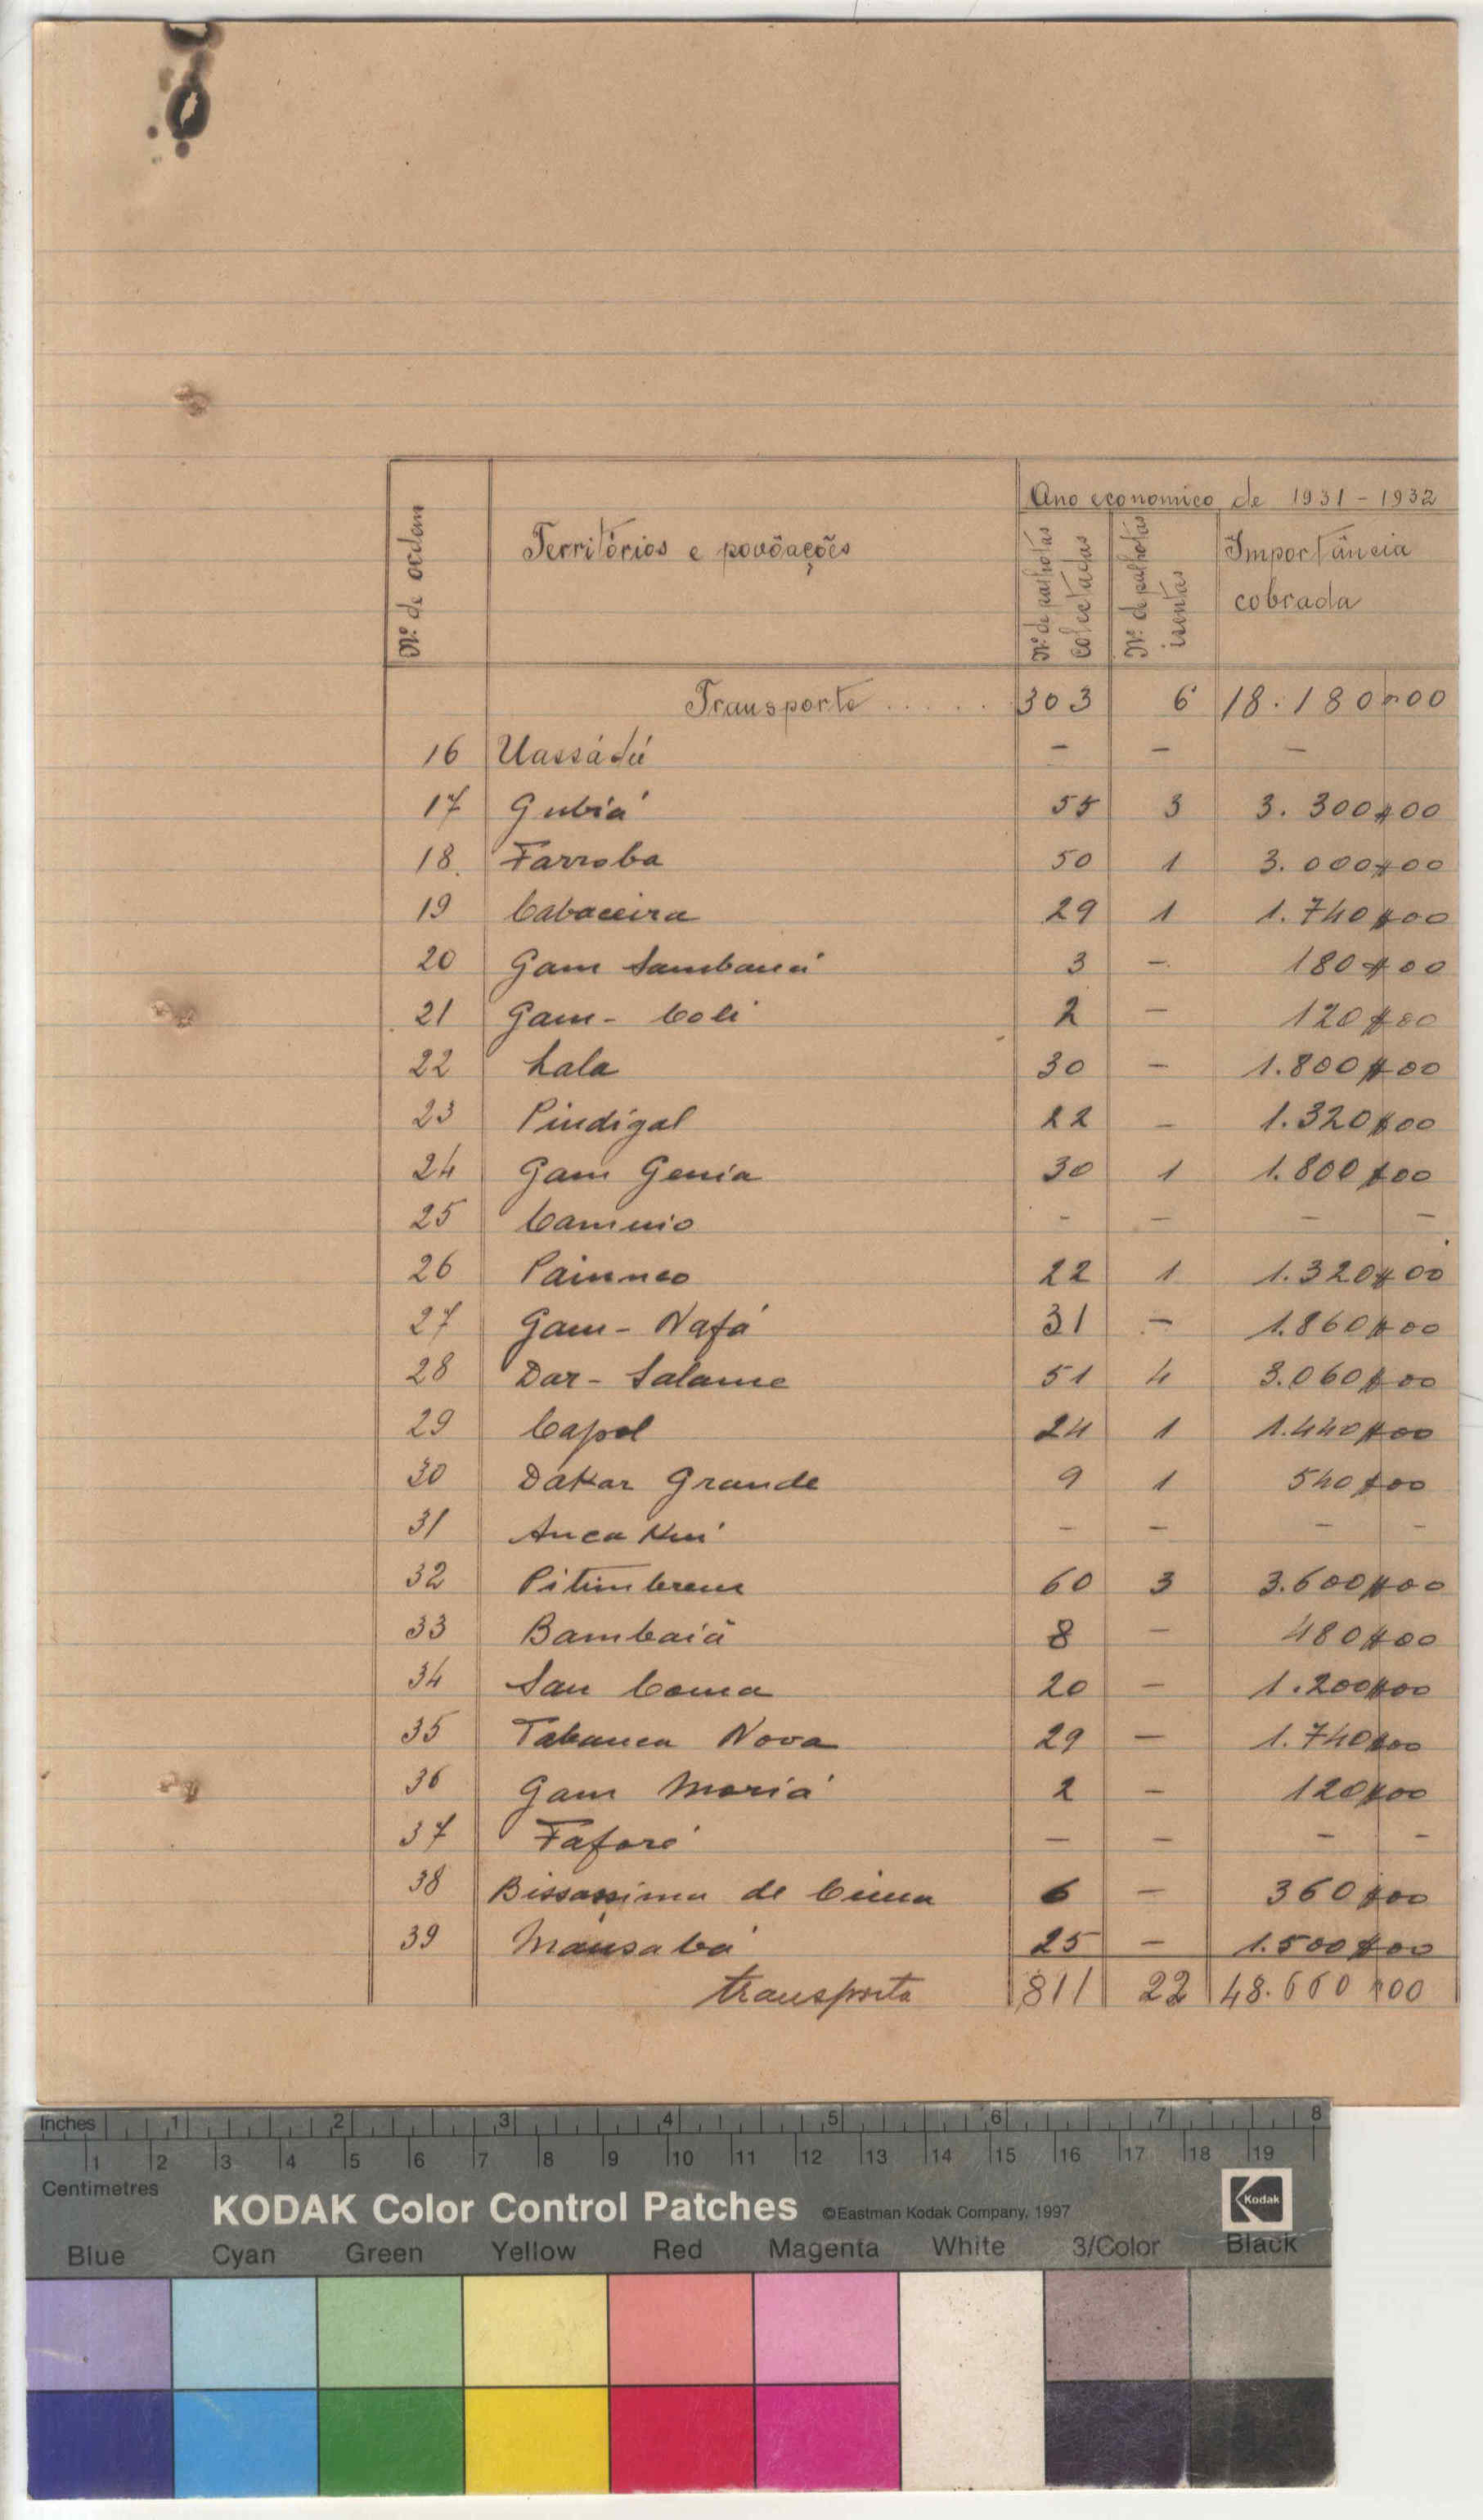 Ano economico de 1931-1932
Nº de ordem
Territórios e povôações
Nº de palhotas colectadas
Nº de palhotas isentas
Importância
cobrada
Transporte ..... 303 6 18.180$00
16 Uassádú - - -
17 Gubiá 55 3 3.300$00
18. Farroba 50 1 3.000$00
19 Cabaceira 29 1 1.740$00
20 Gam 3 - 180$00
21 Gam- Coli 2 - 120$00
22 Lala 30 - 1.800$00
23 Pindigal 22 - 1.320$00
24 Gam Genia 30 1 1.800$00
25 - - - -
26 22 1 1.320$00
27 Gam- Nafá 31 - 1.860$00
28 Dar- Salame 51 4 3.060$00
29 Capol 24 1 1.440$00
30 Dakar Grande 9 1 540$00
31 - - - -
32 60 3 3.600$00
33 Bambaiã 8 - 480$00
34 San Coma 20 - 1.200$00
35 Tabanca Nova 29 - 1.740$00
36 Gam Moriá 2 - 120$00
37 Faforé - - - -
38 Bissassima de Cima 6 - 360$00
39 Mansabá 25 - 1.500$00
transporte 811 22 48.660$00
Inches 1 2 3 4 5 6 7 8
1 2 3 4 5 6 7 8 9 10 11 12 13 14 15 16 17 18 19
Centimetres
KODAK Color Control Patches ©Eastman Kodak Company, 1997 Kodak
Blue Cyan Green Yellow Red Magenta White 3/Color Black